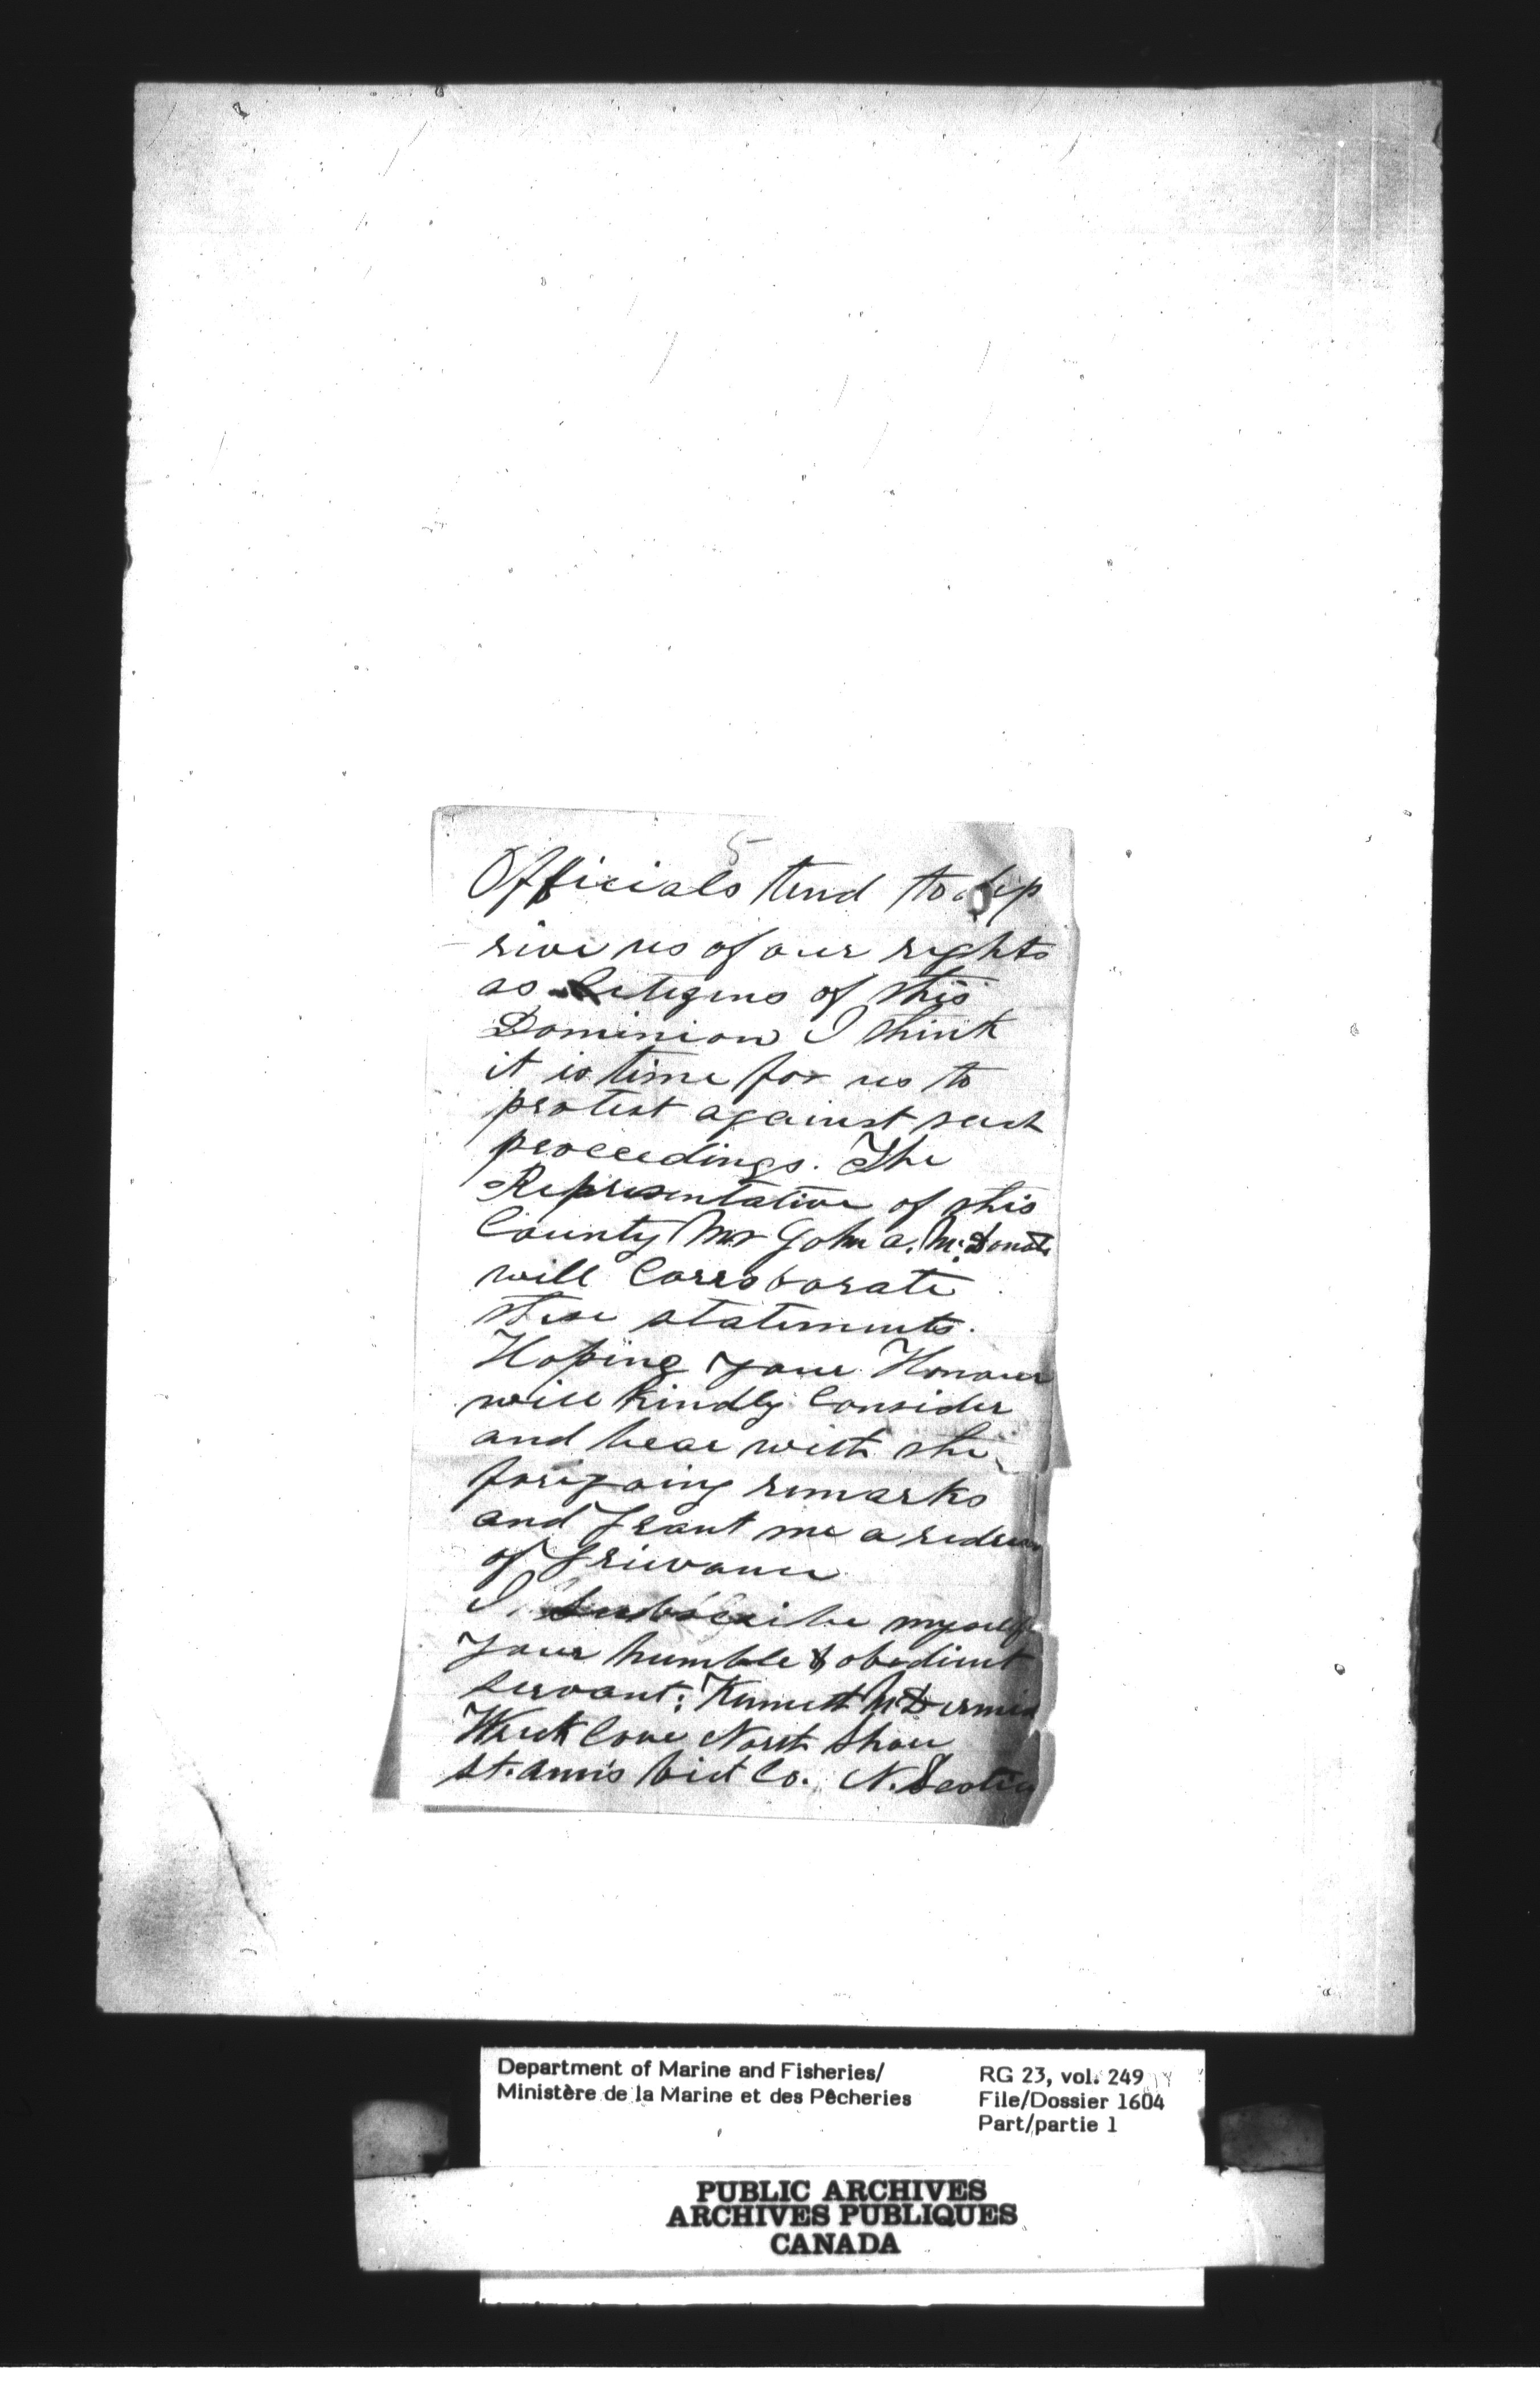 5
Officials tend to dip
rive us of our rights
as Citizens of this
Dominion I think
it is time for us to
protest against such
proceedings. The
Representative of this
County Mr John A. McDonald
will Corroborate
these statements.
Hoping your Honour
will kindly Consider
and bear with the
foregoing remarks
and grant me a redress
of Grievance
I Subscribe myself
your humble & obedient
servant: Kenneth McDermid
Wreck Cove North Shore
St. Ann's Vict Co. N. Scotia
Department of Marine and Fisheries/
Ministère de la Marine et des Pêcheries
RG 23, vol. 249
File/Dossier 1604
Part/partie 1
PUBLIC ARCHIVES
ARCHIVES PUBLIQUES
CANADA